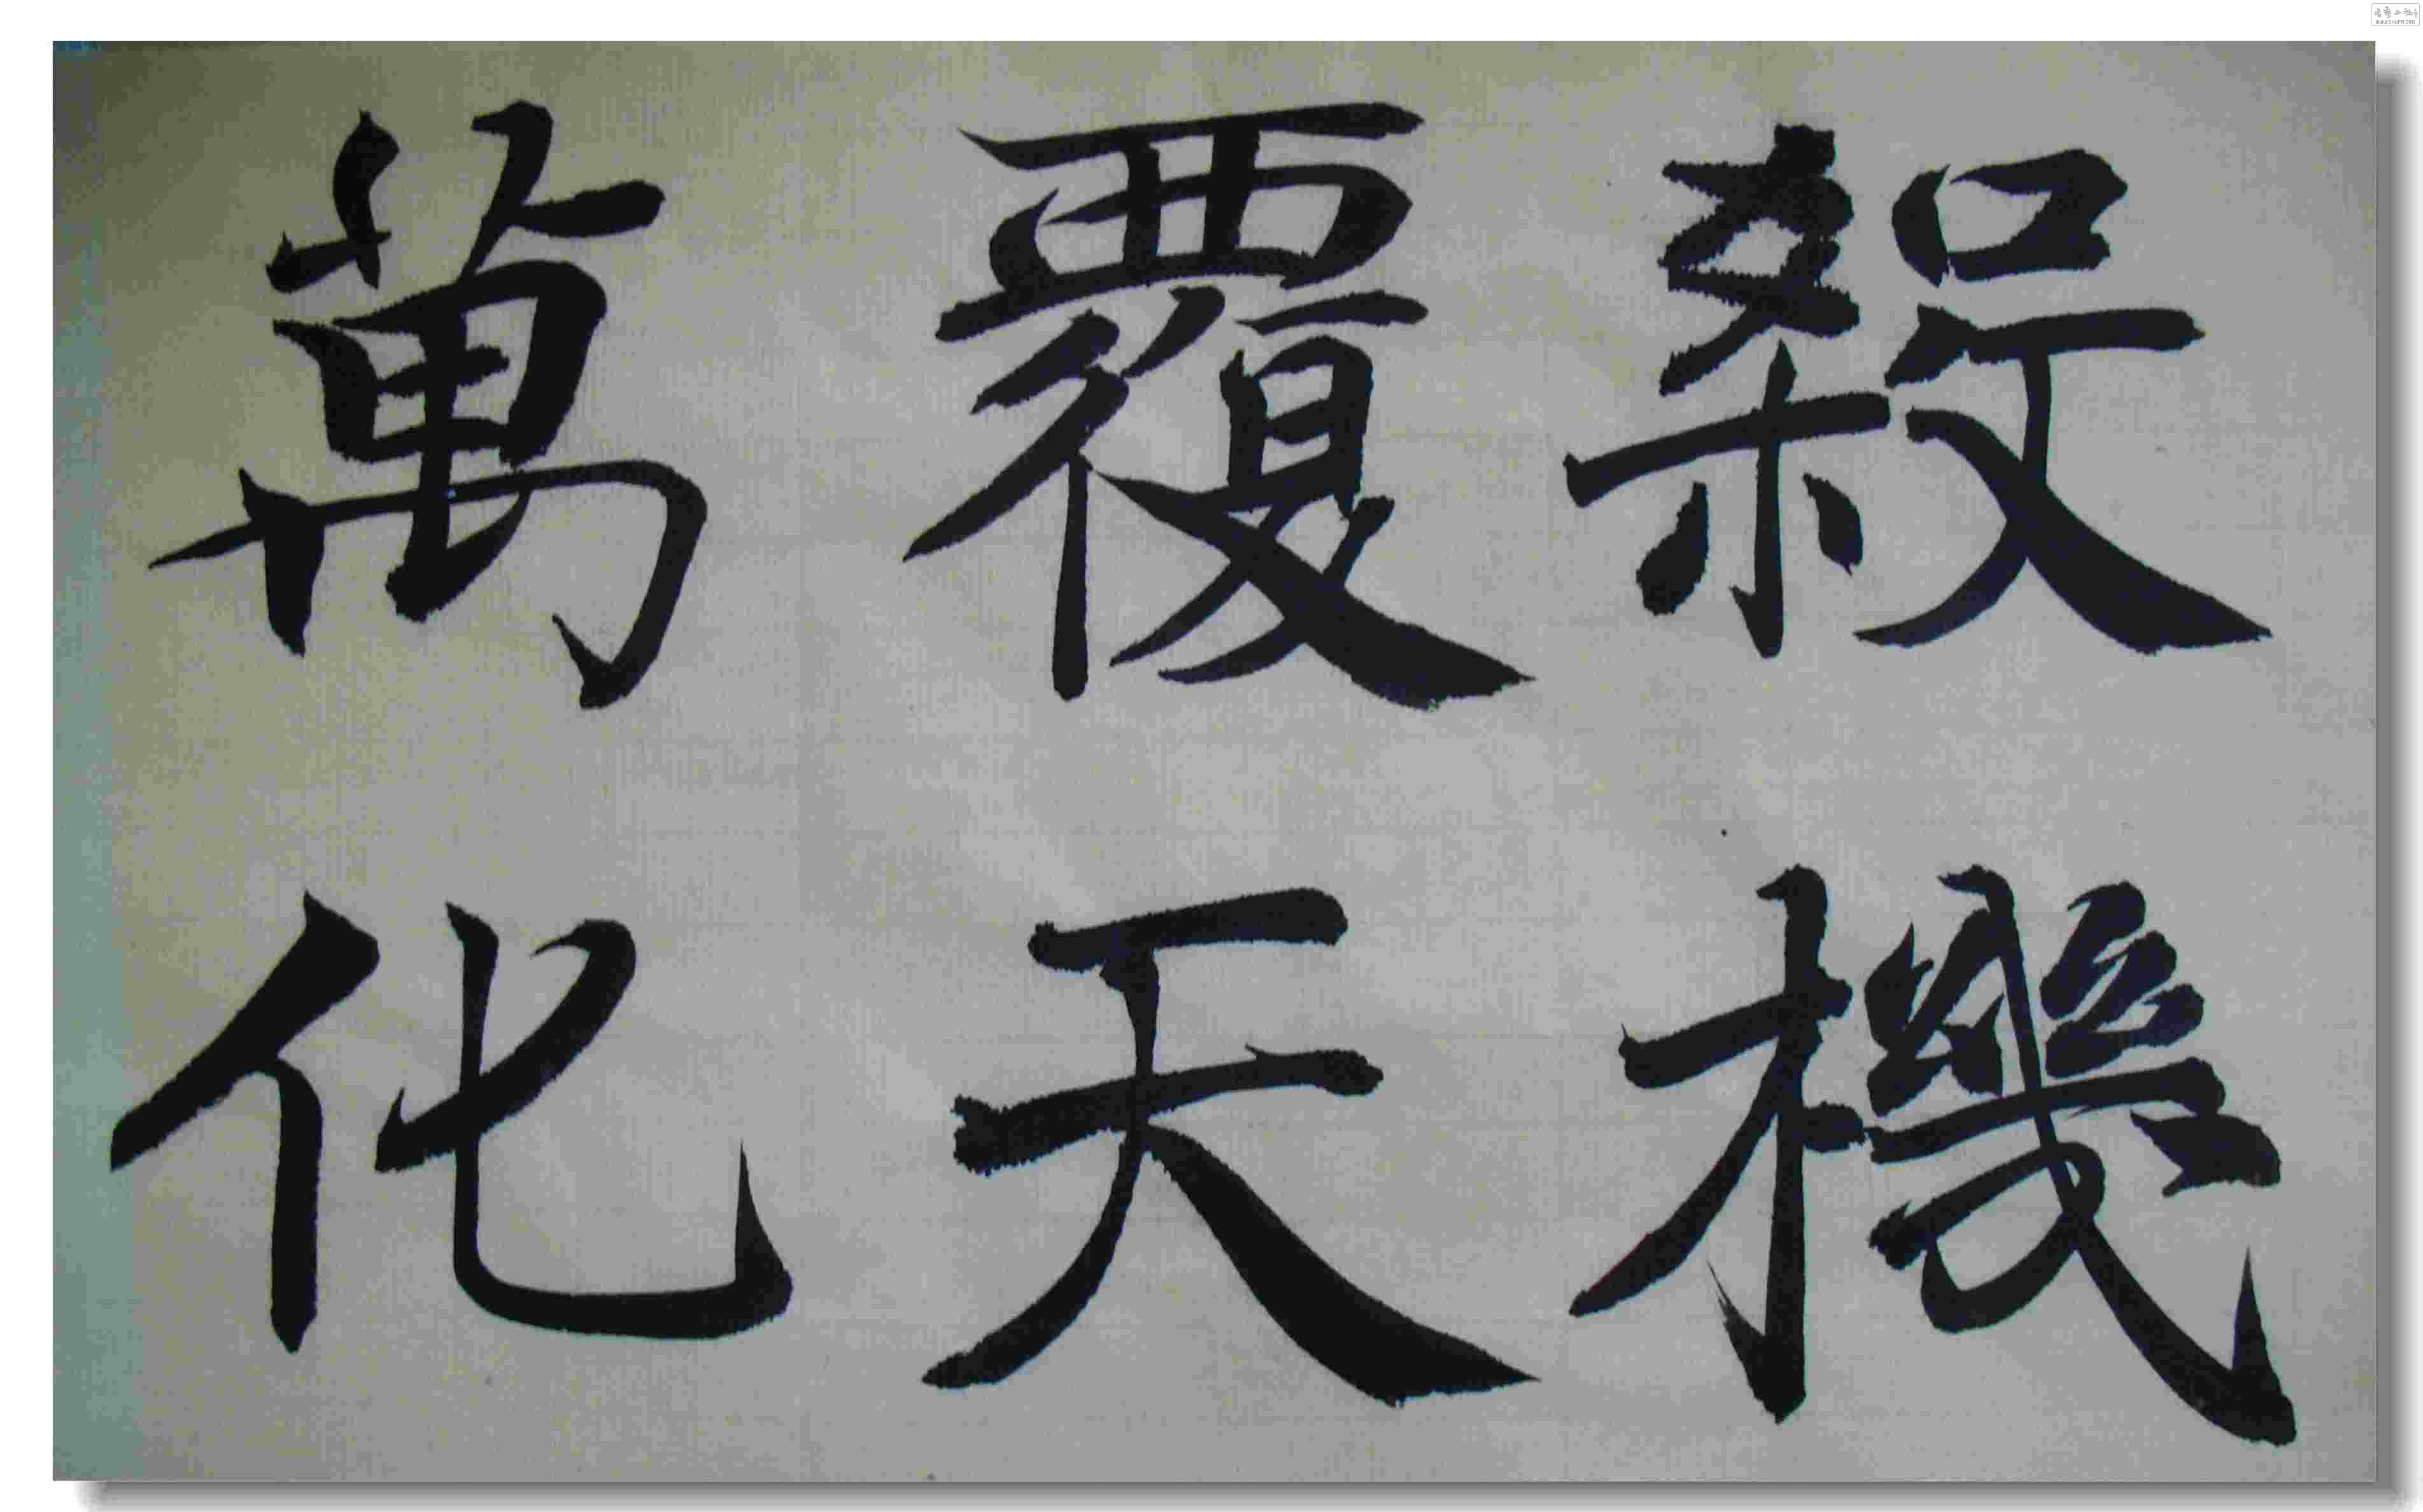 殺機
覆天
萬化